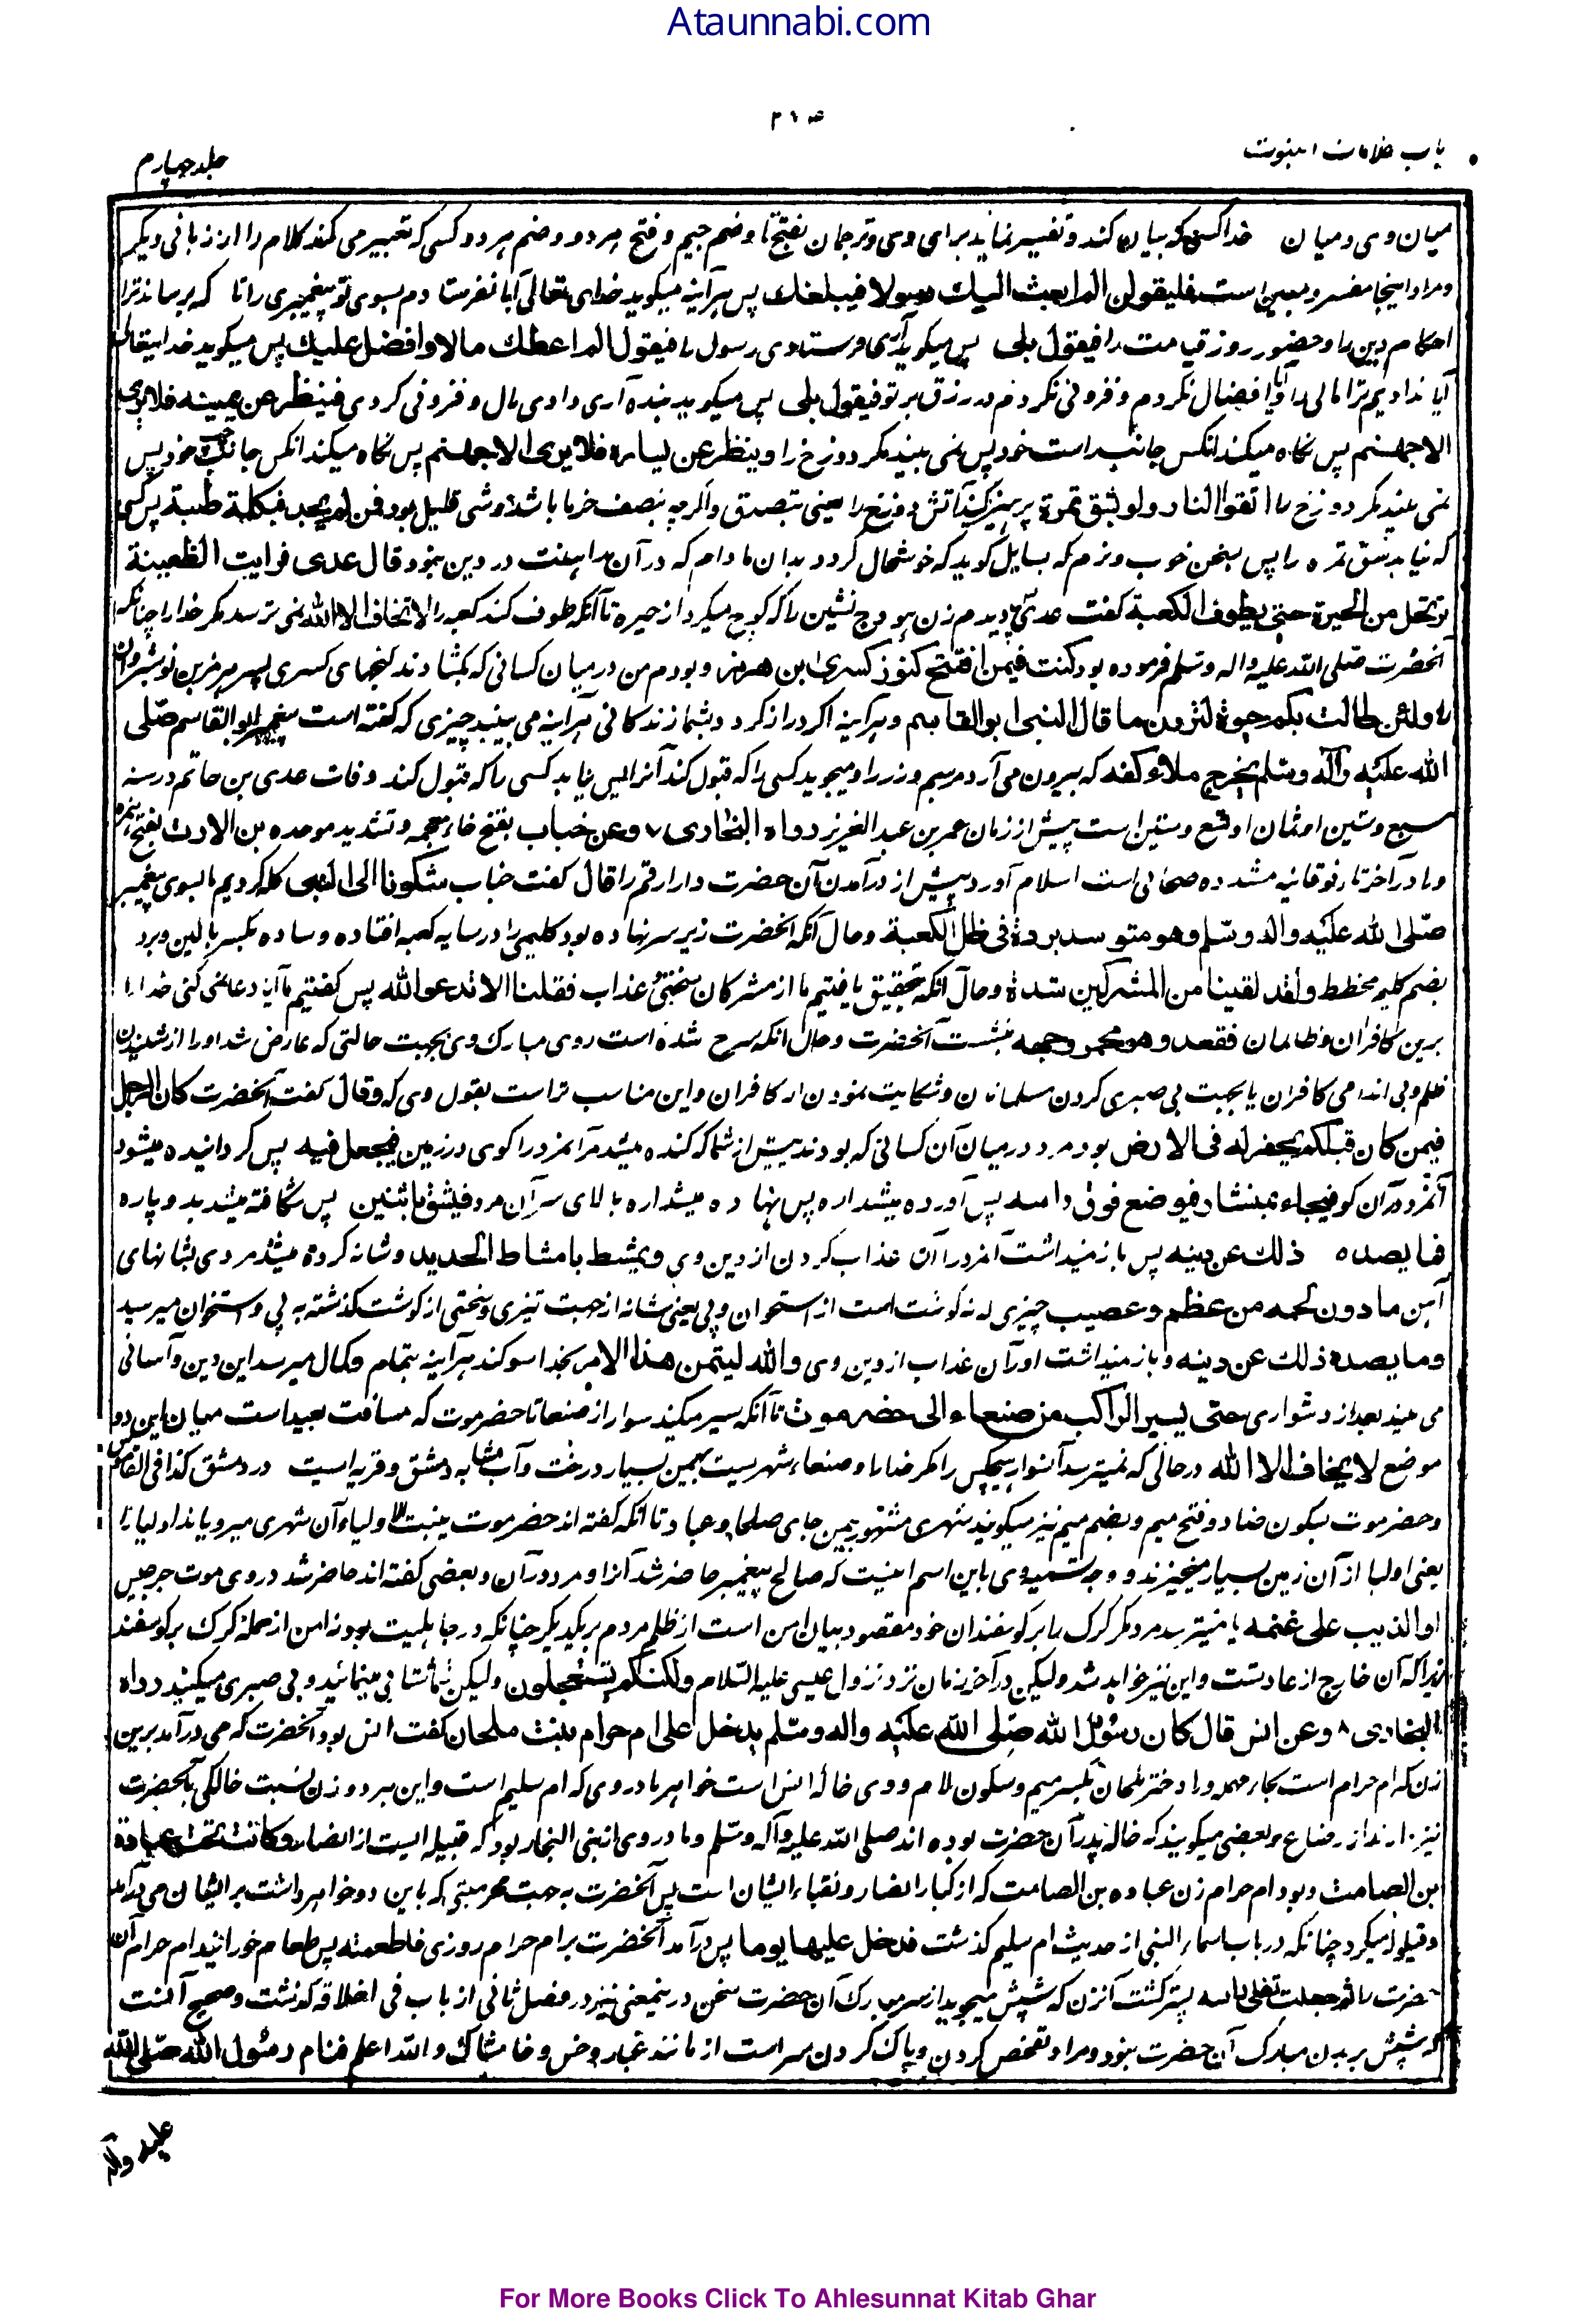 Ataunnabi.com
باب علامات النبوت
جلد چهارم
میان وی و میان خدا کسی که بیان کند و تفسیر نماید برای وی و ترجمان بفتح تا و ضم جیم و فتح هر دو و ضم هر دو کسی که تعبیر می کند کلام را از زبانی دیگر
و مراد اینجا مفسر و مبین است فلیقولن الم ابعث الیك رسولا فیبلغك پس هر آینه میگوید خدای تعالی آیا نفرستادم بسوی تو پیغمبری را تا که برساند ترا
احکام دین را و حضور روز قیامت را فیقول بلی پس میگوید آری فرستادی رسول را فیقول الم اعطك مالا وافضل علیك پس میگوید خدا یتعالی
آیا ندادیم ترا مالی را و آیا افضال نکردم و فزونی نکردم در رزق بر تو فیقول بلی پس میگوید بنده آری دادی مال و فزونی کردی فینظر عن یمینه فلا یری
الا جهنم پس نگاه میکند انکس جانب راست خود پس نمی بیند مگر دوزخ را وینظر عن یساره فلا یری الا جهنم پس نگاه میکند انکس جانب چپ خود پس
نمی بیند مگر دوزخ را اتقوا النار ولو بشق تمرة پرهیز کنید آتش دوزخ را یعنی بتصدق و اگرچه بنصف خرما باشد و شی قلیل بود فمن لم یجد فبکلمة طیبة پس کسی
که نیابد شق تمره را پس بسخن خوب و نرم که بسایل گوید که خوشحال گردد بدان مادام که در آن مداهنت در دین نبود قال عدی فرایت الظعینة
ترتحل من الحیرة حتی یطوف الکعبة گفت عدی پس دیدم زن هودج نشین را که کوچ میکرد از حیره تا آنکه طواف کند کعبه را لا تخاف الا الله نمی ترسد مگر خدا را چنانکه
آنحضرت صلی الله علیه واله وسلم فرموده بود کنت فیمن افتتح کنوز کسری ابن هرمز و بودم من در میان کسانی که بگشادند گنجهای کسری پسر هرمز بن نوشیروان
را ولئن طالت بکم حیوة لترون ما قال النبی ابو القاسم و هر آینه اگر دراز گردد بشما زندگانی هر آینه می بینید چیزی که گفته است پیغمبر ابو القاسم صلی
الله علیه وآله وسلم یخرج ملاء کفه که بیرون می آرد مردم سیم و زر را و میجوید کسی را که قبول کند آنرا پس نیابد کسی را که قبول کند وفات عدی بن حاتم در سنه
سبع وستین او ثمان او تسع وستین است پیش از زمان عمر بن عبد العزیز رواه البخاری ۷ وعن خباب بفتح خاء معجمه و تشدید موحده بن الارت بفتح همزه
و را در آخر تاء فوقانیه مشدده صحابی است اسلام آورد پیش از درآمدن آن حضرت دار ارقم را قال گفت خباب شکونا الی النبی گله کردیم ما بسوی پیغمبر
صلی الله علیه واله وسلم وهو متوسد بردة فی ظل الکعبة وحال آنکه آنحضرت زیر سر نهاده بود گلیمی را در سایه کعبه افتاده وساده بکسر بالین وبرد
بضم گلیم مخطط ولقد لقینا من المشرکین شدة وحال آنکه بتحقیق یافتیم ما از مشرکان سختی عذاب فقلنا الا تدعو الله پس گفتیم ما آیا دعا نمی کنی خدا را
برین کافران و ظالمان فقعد وهو محمر وجهه بنشست آنحضرت وحال آنکه سرخ شده است روی مبارک وی بجهت حالتی که عارض شد او را از شنیدن
ظلم وبی اندامی کافران یا بجهت بی صبری کردن مسلمانان وشکایت نمودن از کافران و این مناسب تر است بقول وی که وقال گفت آنحضرت کان الرجل
فیمن کان قبلکم یحفر له فی الارض بود مرد در میان آن کسانی که بودند پیش از شما که کنده میشد مر آنمرد را گوی در زمین فیجعل فیه پس گردانیده میشود
آنمرد در آن گو فیجاء بمنشار فیوضع فوق راسه پس آورده میشد اره پس نهاده میشد اره بالای سر آن مرد فیشق باثنین پس شگافته میشد بدو پاره
فما یصده ذلك عن دینه پس باز نمیداشت آنمرد را آن عذاب کردن از دین وی ویمشط بامشاط الحدید وشانه کرده میشد مردی بشانهای
آهن ما دون لحمه من عظم وعصب چیزی که نه گوشت است از استخوان و پی یعنی شانه از جهت تیزی و سختی از گوشت گذشته به پی و استخوان میرسید
وما یصده ذلك عن دینه و باز نمیداشت او را آن عذاب از دین وی والله لیتمن هذا الامر بخدا سوگند هر آینه بتمام و کمال میرسد این دین و آسانی
می بیند بعد از دشواری حتی یسیر الراکب من صنعاء الی حضرموت تا آنکه سیر میکند سوار از صنعا تا حضرموت که مسافت بعید است میان این دو
موضع لا یخاف الا الله در حالی که نمیترسد آنسوار هیچکس را مگر خدا را و صنعاء شهریست بیمن بسیار درخت و آب مشابه بدمشق و قریه ایست در دمشق کذا فی القاموس
وحضرموت بسکون ضاد و فتح میم و بضم میم نیز میگویند شهری مشهور بیمن جای صلحا و عباد تا آنکه گفته اند حضرموت ینبت الاولیاء آن شهری میرویاند اولیا را
یعنی اولیا از آن زمین بسیار میخیزند و وجه تسمیه وی باین اسم اینست که صالح پیغمبر حاضر شد آنرا و مرد در آن و بعضی گفته اند حاضر شد در وی موت جرجیس
او الذیب علی غنمه یا نمیترسد مرد مگر گرگ را بر گوسفندان خود مقصود بیان امن است از ظلم مردم بر یکدیگر چنانکه در جاهلیت بود نه امن از حمله گرگ بر گوسفند
زیرا که آن خارج از عادتست و این نیز خواهد شد ولیکن در آخر زمان نزد نزول عیسی علیه السلام ولکنکم تستعجلون ولیکن شما شتابی مینمائید و بی صبری میکنید رواه
البخاری ۸ وعن انس قال کان رسول الله صلی الله علیه واله وسلم یدخل علی ام حرام بنت ملحان گفت انس بود آنحضرت که می درآمد برین
زن که ام حرام است بحاء مهمله و را دختر ملحان بکسر میم و سکون لام و وی خالهٔ انس است خواهر مادر وی که ام سلیم است و این هر دو زن نسبت خالگی بآنحضرت
نیز دارند از رضاع و بعضی میگویند که خاله پدر آن حضرت بوده اند صلی الله علیه وآله وسلم و مادر وی از بنی النجار بود که قبیله ایست از انصار وکانت تحت عبادة
بن الصامت و بود ام حرام زن عباده بن الصامت که از کبار انصار و نقباء ایشان است پس آنحضرت به جهت محرمیتی که باین دو خواهر داشت بر ایشان می درآمد
و قیلوله میکرد چنانکه در باب اسماء النبی از حدیث ام سلیم گذشت فدخل علیها یوما پس درآمد آنحضرت بر ام حرام روزی فاطعمته پس طعام خورانید ام حرام آن
حضرت را ثم جعلت تفلی راسه پستر گشت آنزن که شپش میجوید از سر مبارک آن حضرت سخن درینمعنی نیز در فصل ثانی از باب فی اخلاقه گذشت و صحیح آنست
که شپش بر بدن مبارک آن حضرت نبود و مراد تفحص کردن و پاک کردن سر است از مانند غبار و خس و خاشاک و الله اعلم فنام رسول الله صلی الله
علیه وآله
For More Books Click To Ahlesunnat Kitab Ghar